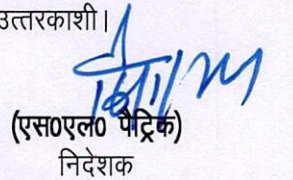 उत्तरकाशी।
(एस0एल0 पैट्रिक)
निदेशक